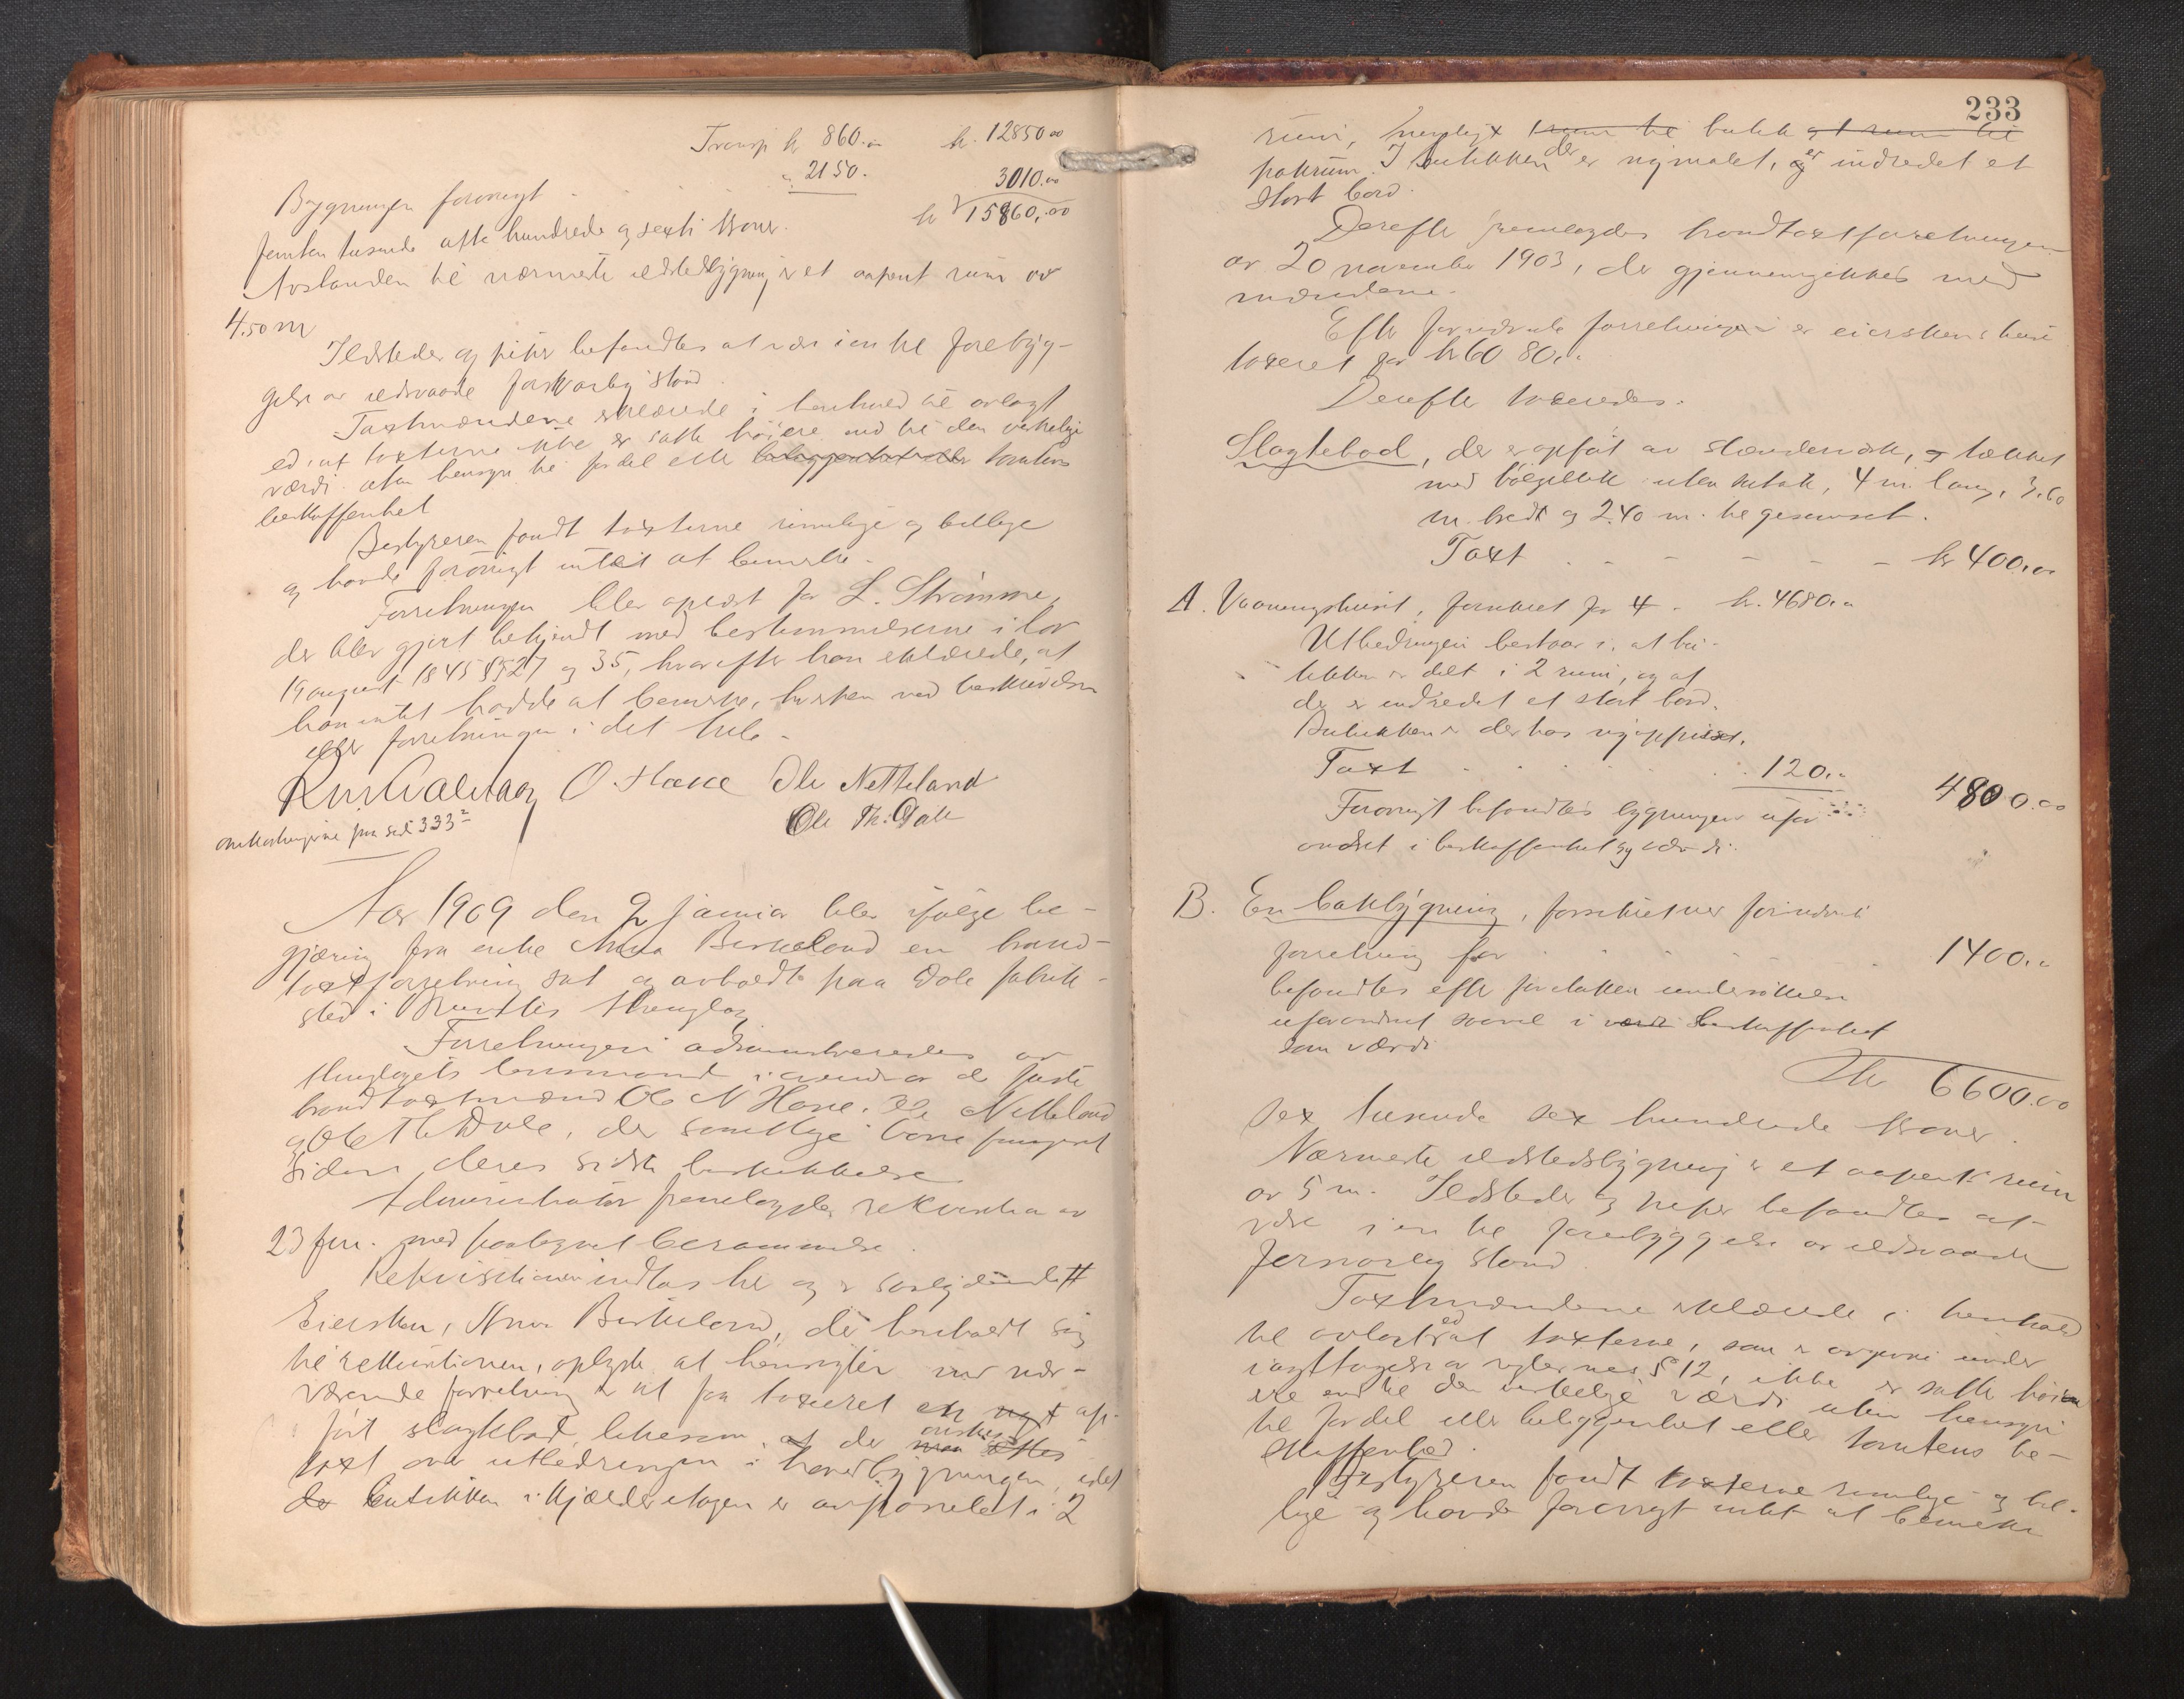 Transp kr 860.00 kr. 12850.00
" 2150. 3010.00
Bygningen forøvrigt
kr 15860.00
femten tusende otte hundrede og sexti kroner.
Avstanden til nærmeste ildstedsbygning er et aapent rum av
4.50 m
Ildsteder og piper befandtes at være i en til forebyg-
gelse av ildsvaade forsvarlig stand.
Taxtmændene erklærede i henhold til avlagt
ed, at taxterne ikke er satte høiere end til den virkelige
værdi uten hensyn til fordel eller beliggenhet eller tomtens
beskaffenhet
Bestyreren fandt taxterne rimelige og billige
og havde forøvrigt intet at bemerke.
Forretningen blev oplæst for L. Strømme,
der blev gjort bekjendt med bestemmelserne i lov
19 august 1845 §§ 27 og 35, hvorefter han erklærede, at
han intet hadde at bemerke, hverken ved beskrivelsen
eller forretningen i det hele.
O. Hane Ole Netteland
Ole Th. Dale
Omkostningerne paa side 333
Aar 1909 den 2 januar blev ifølge be-
gjæring fra enke Anna Birkeland en brand-
taxtforretning sat og avholdt paa Dale fabrik-
sted i Bruvik thinglag
Forretningen administreredes av
thinglagets lensmand i nærvær av de faste
brandtaxtmænd Ole N Hane, Ole Netteland
og Ole Th Dale, der samtlige have fungeret
siden deres sidste beskikkelse.
Administrator fremlagde rekvisition av
23 f.m. med paategnet berammelse.
Rekvisitionen indtas her og er saalydende #
Eiersken, Anna Birkeland, der henholdt sig
til rekvisitionen, oplyste at hensigten med nær-
værende forretning er at faa taxeret en nyt op-
ført slagtebod, likesom at der ønskes
taxt over utbedringen i hovedbygningen, idet
der butikken i kjælderetagen er avpanelet i 2
233
rum, nemlig rum til butik og et rum til
pakrum. I butikken der er nymalet, og er indredet et
stort bord.
Derefter fremlagdes brandtaxtforretningen
av 20 november 1903, der gjennemgikkes med
mændene.
Efter forrædende forretningen er eierskens hus
taxeret for kr 6080.00
Derefter taxeredes:
Slagtebod, der er opført av stænderverk, og tækket
med bølgeblik uten utstik, 4 m. lang, 3.60
m. bredt og 2.40 m. til gesimset.
Taxt - - - - - kr 400.00
A. Vaaningshuset, forsikret for 4 kr. 4680.00
Utbedringen bestaar i, at bu-
tikken er delt i 2 rum, og at
der er indredet et stort bord.
Butikken er derhos nyoppusset.
Taxt 120.00 4800.00
Forøvrigt befandtes bygningen ufor
andret i beskaffenhet og værdi.
B. En bakbygning, forsikret ved forrædende
forretning for 1400.00
befandtes efter foretatten undersøkelse
uforandret saavel i værdi beskaffenhet
som værdi
Kr 6600.00
sex tusende sex hundrede kroner.
Nærmeste ildstedsbygning er et aapent rum
av 5 m. Ildsteder og piper befandtes at
være i en til forebyggelse av ildsvaade
forsvarlig stand.
Taxtmændene erklærede i henhold
til avlagt ed at taxterne, som er avgivne under
iagttagelse av reglernes § 12, ikke er satte høi
ere end til den virkelige værdi uten hensyn
til fordel eller beliggenhet eller tomtens be-
skaffenhed.
Bestyreren fandt taxterne rimelige og bil-
lige og havde forøvrigt intet at bemerke